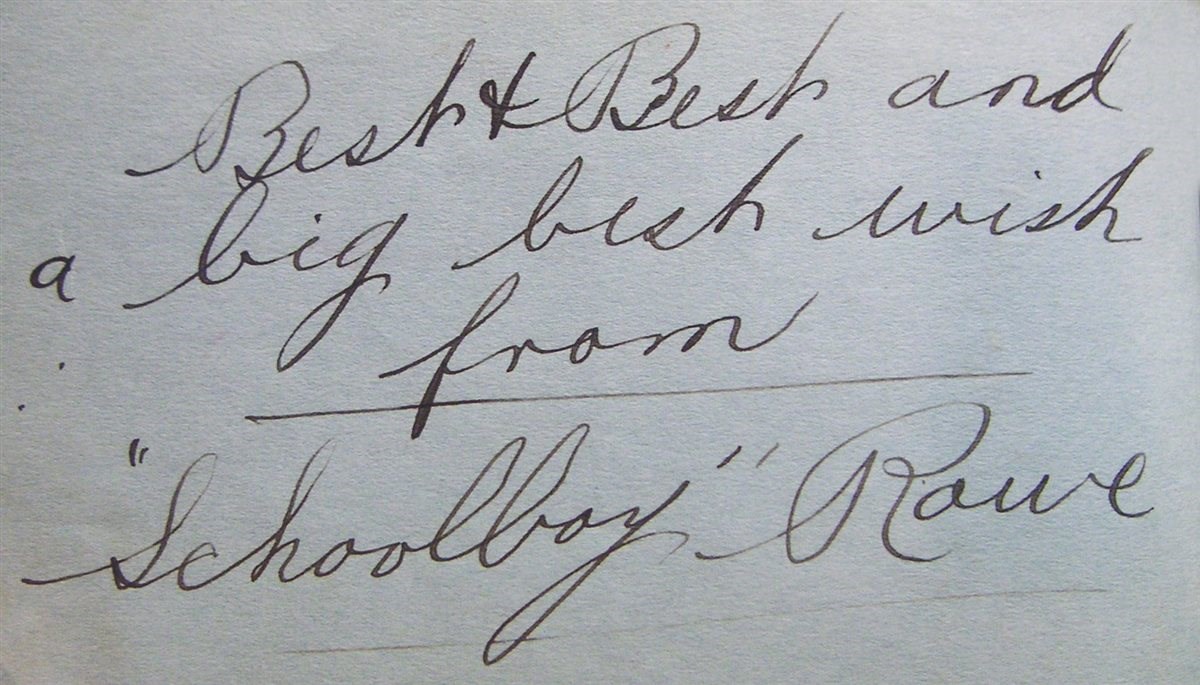 Best & Best and
a big best wish
from
"Schoolboy" Rowe